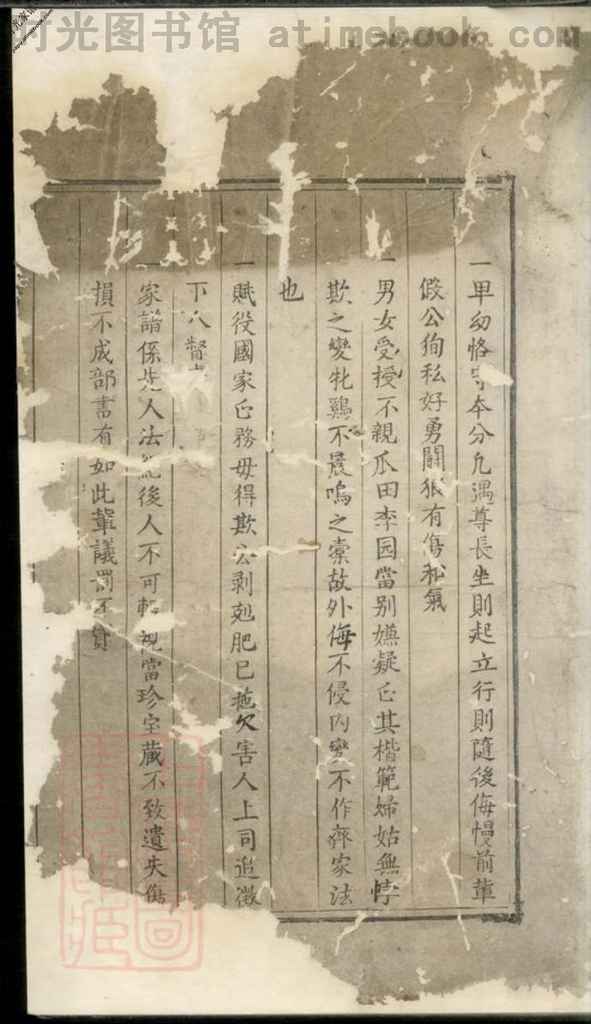 时光图书馆 atimebook.com
一卑幼恪守本分凢遇尊長坐則起立行則隨後侮慢前輩
假公徇私好勇鬪狠有傷和氣
一男女受授不親瓜田李园當别嫌疑正其楷範婦姑無悖
欺之變牝鷄不晨鳴之索故外侮不侵内變不作齊家法
也
一賦役國家正務毋得欺公剥尅肥已拖欠害人上司追徵
下人督
一家譜係先人法後人不可輕視當珍宝藏不致遺失傷
損不成部書有如此輩議罰不貸